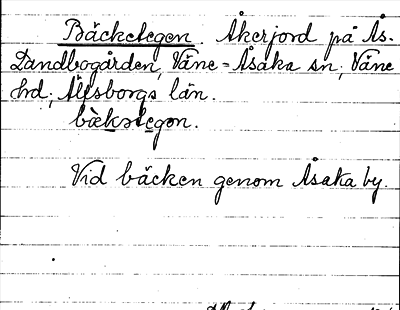 Bäckstegen. Åkerjord på Ås-
Landbogården, Väne-Åsaka sn, Väne
hd, Älfsborgs län.
bækstegɵn.
Vid bäcken genom Åsaka by.